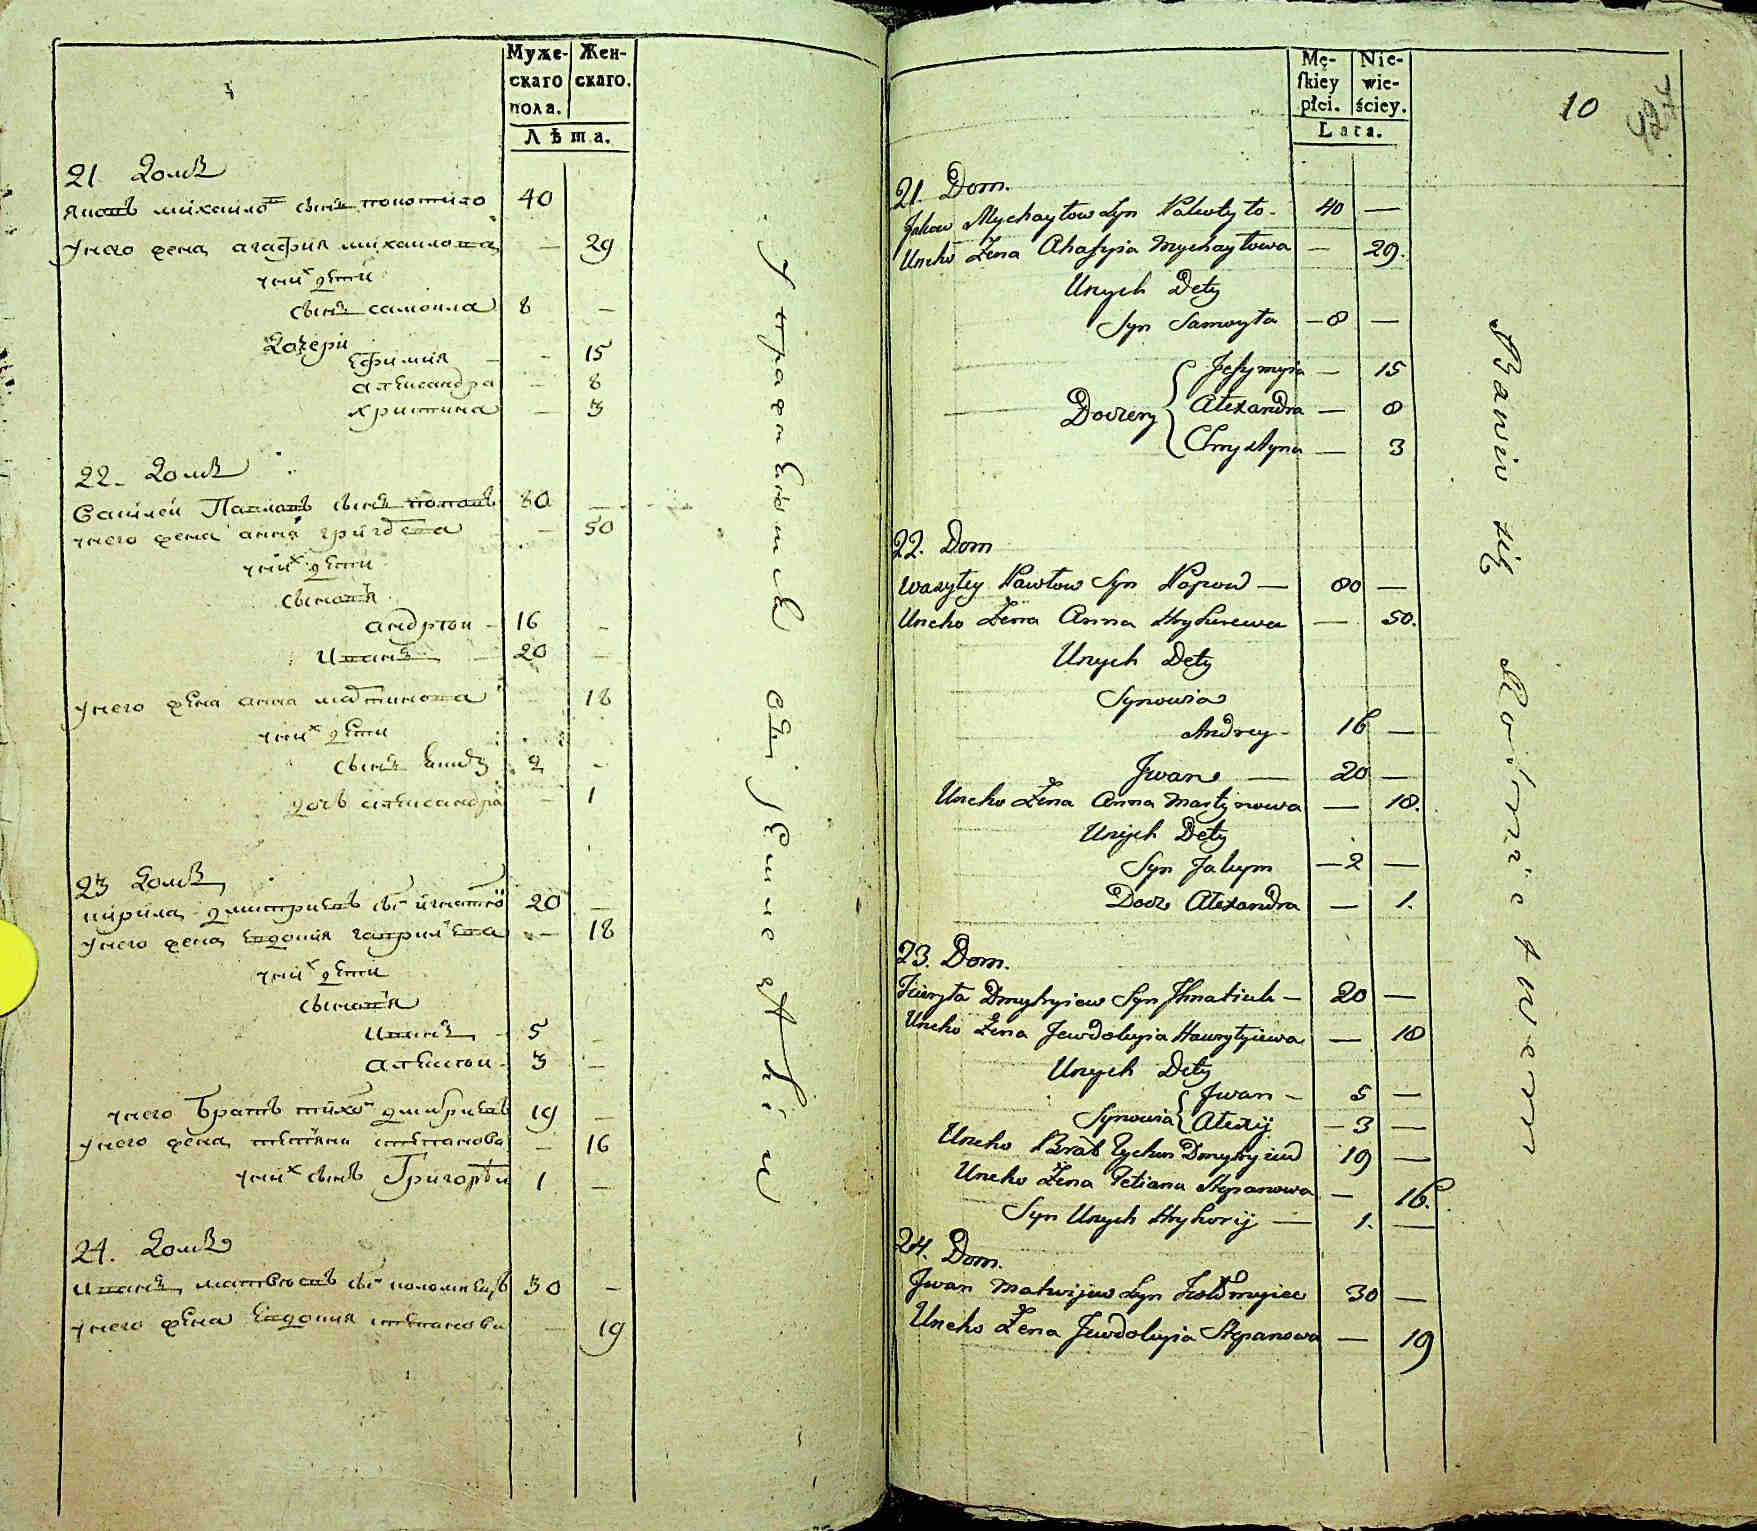 Муже-
скаго
пола.
Жен-
скаго.
Лѣта.
21 Домъ
Яковъ михайло сынъ 40
унего жена агафия михаилова — 29
уних дети
сынъ самоила 8 —
Дочери
Ефимия — 15
александра — 8
христина — 3
22. Домъ
Василей Павловъ сынъ поповъ 80 —
унего жена анна григорева — 50
уних дети
сыновя
андрей 16 —
Иванъ 20 —
унего жена анна мартинова — 18
уних дети
сынъ 2 —
дочь александра — 1
23 Домъ
кирила дмитриевъ сы игнатюк 20 —
унего жена Евдокия гаврилева — 18
уних дети
сыновя
Иванъ 5 —
алексей 3 —
унего братъ тихо дмитриевъ 19 —
унего жена тетяна степанова — 16
уних сынъ Григорей 1 —
24. Домъ
Иванъ матвеевъ сы коломиецъ 30 —
унего жена Евдокия степанова — 19
Mę-
skiey
płci.
Nie-
wie-
ściey.
Lata.
10
21. Dom.
Jakow Mychayłow Syn 40 —
Uneho Żena Ahafyia Mychayłowa — 29.
Unych Dety
Syn Samoyła — 8 —
Jefymyia — 15
Doczery Alexandra — 8
Chrystyna — 3
22. Dom
Wasyley Pawłow Syn Popow — 80 —
Uneho Żena Anna Hryhurewa — 50.
Unych Dety
Synowia
Andrey 16 —
Jwan — 20 —
Uneho Żena Anna Martynowa — 18.
Unych Dety
Syn Jakym — 2 —
Docz Alexandra — 1.
23. Dom.
Kiryła Dmytryiew Syn Ihnatiuk — 20 —
Uneho Żena Jewdokyia Hawryłyiewa — 18
Unych Dety
Jwan — 5 —
Synowia Alexij — 3 —
Uneho Brat Tychon Dmytryiew 19 —
Uneho Żena Tetiana Stepanowa — 16.
Syn Unych Hryhorij — 1. —
24. Dom.
Jwan Matwijew Syn Kołomyiec 30 —
Uneho Żena Jewdokyia Stepanowa — 19
Bawiw się Rolnictwem